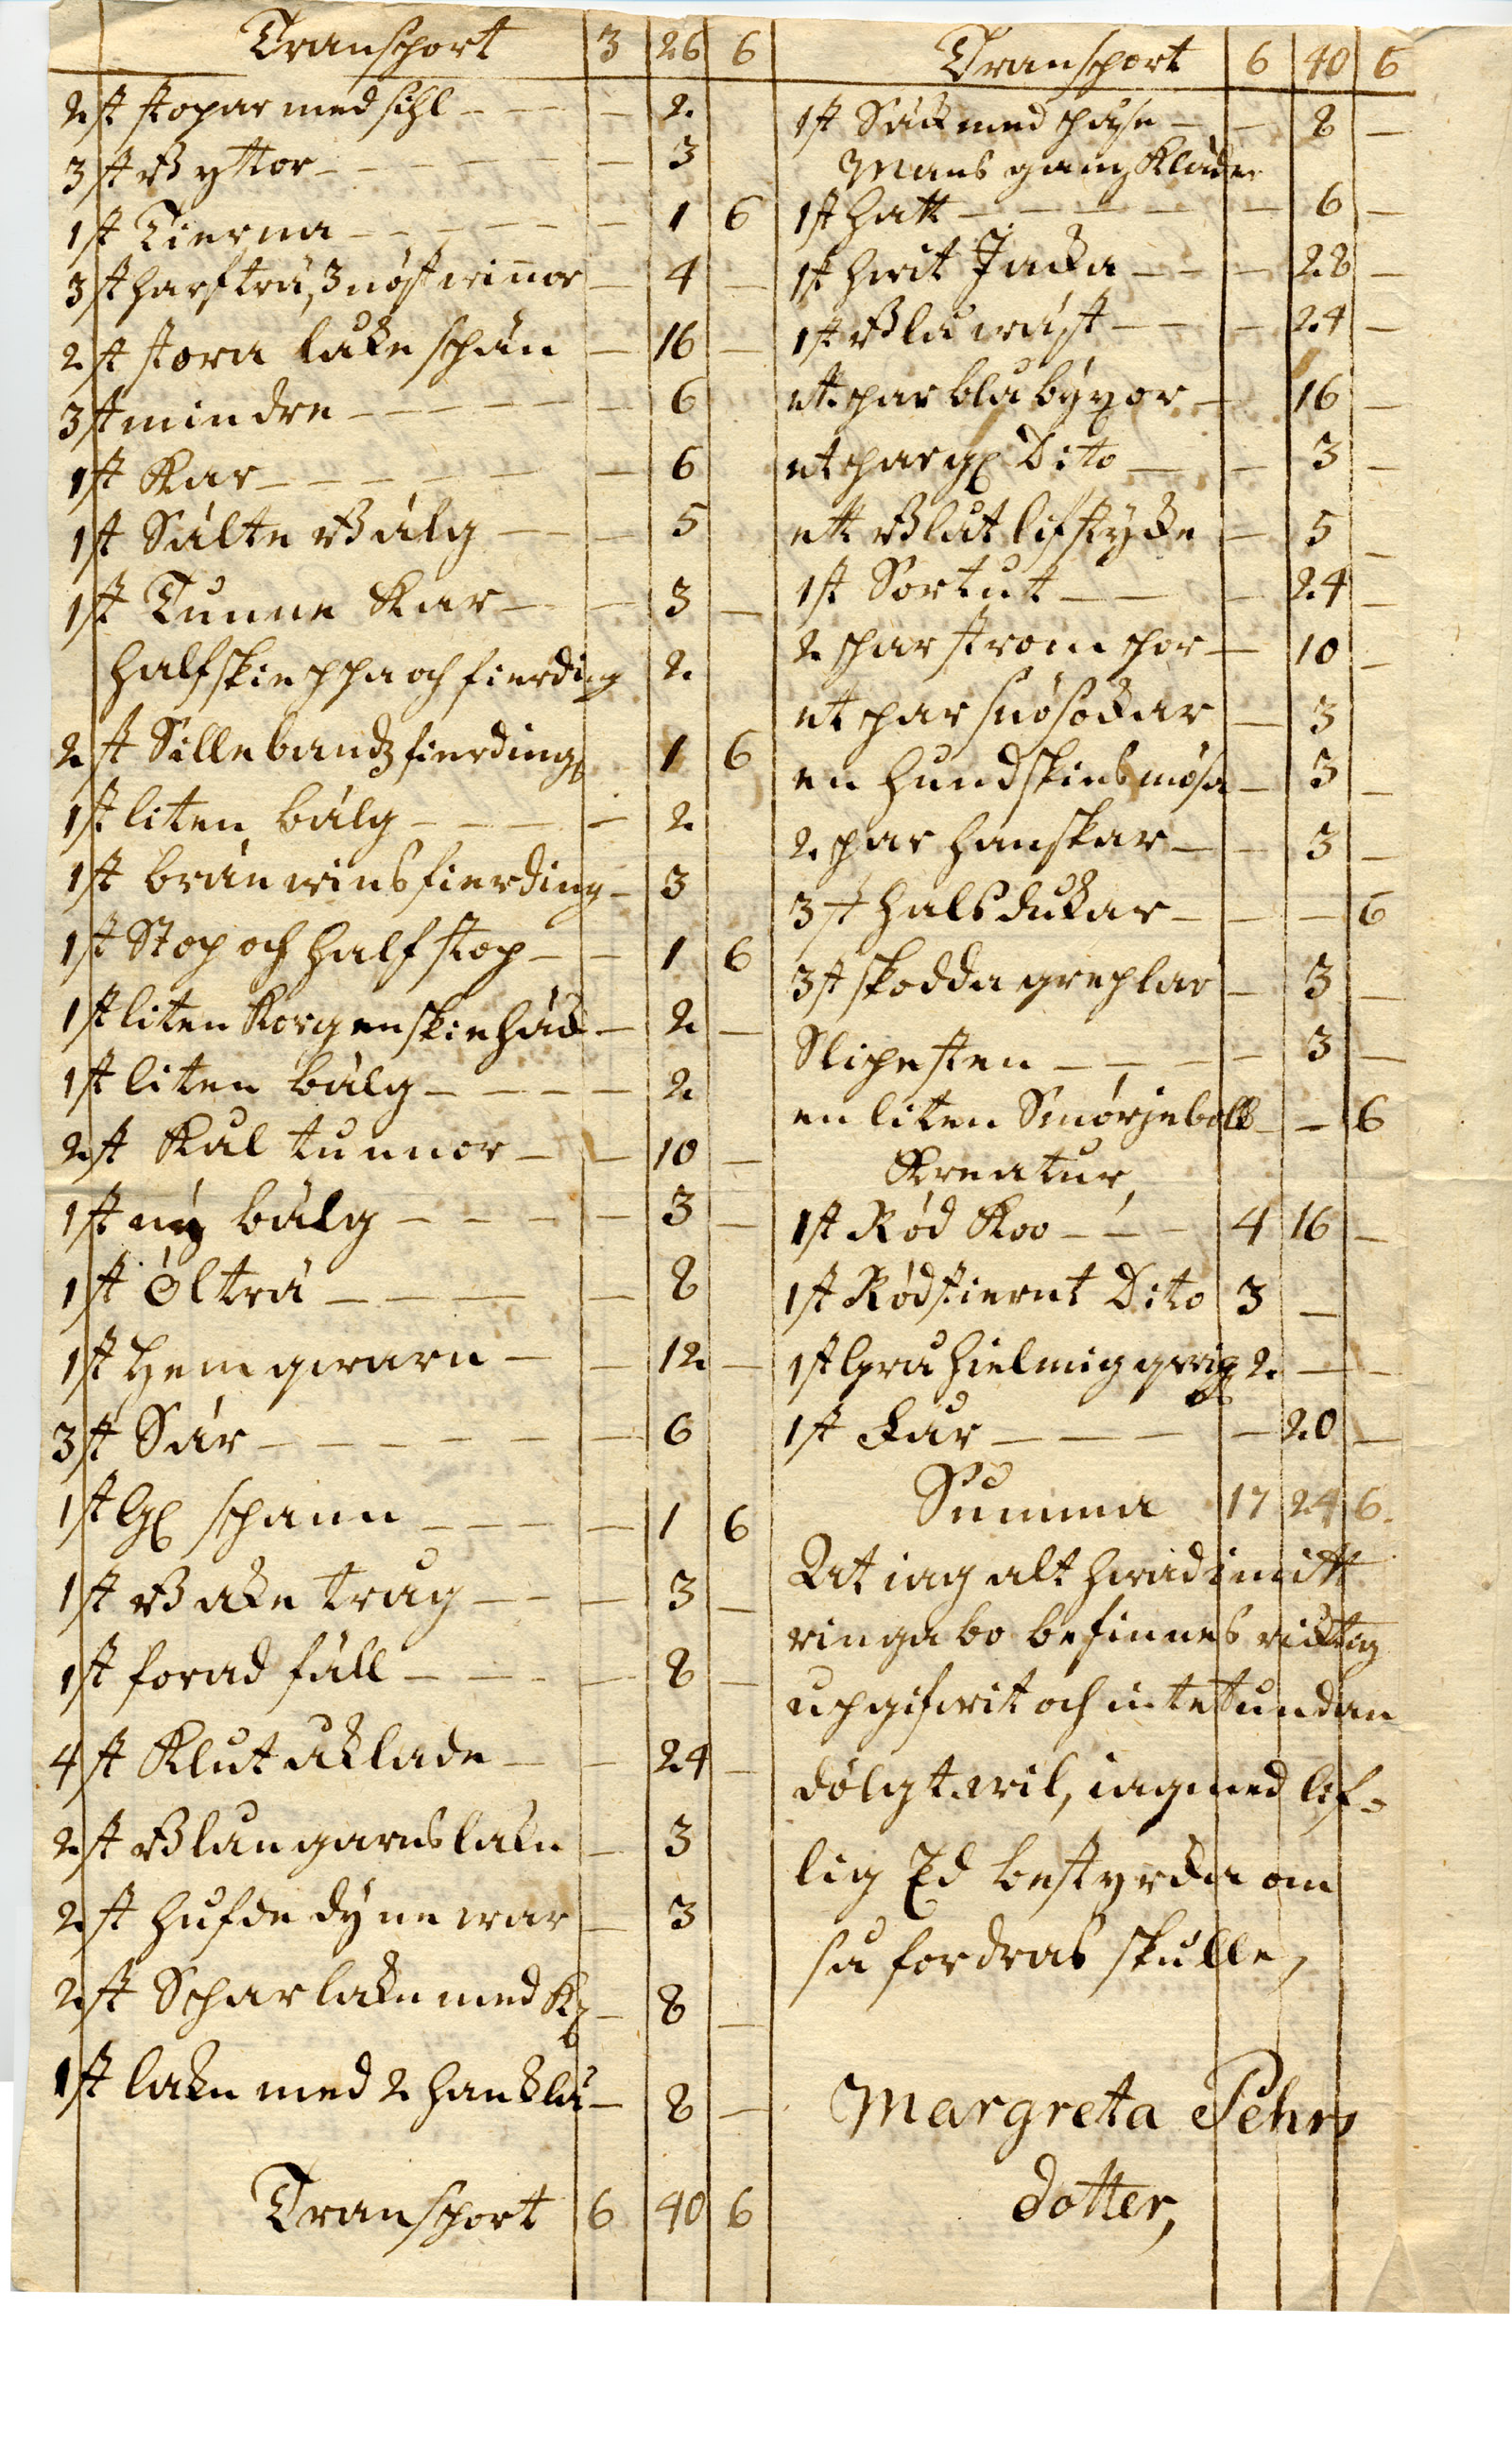 Transport 3 26 6
2 st stopar med sihl - - - 2
3 st Byttor - - - 3
1 st Tierna - - - 1 6
3 st harfträ, 3 nöstwinnor - 4 -
2 st stora lake spän - 16 -
3 st mindre - - - 6
1 st Kar - - - 6
1 st Sälte Bälg - - - 5
1 st Tunne Kar - - 3 -
halfskieppa och fierding 2
2 st Sillebandz fierding 1 6
1 st liten bälg - - - 2
1 st bränwins fierding - 3
1 st Stop och half stop - - 1 6
1 st liten Korg en skiehäck - 2 -
1 st liten bälg - - - 2
2 st Kål tunnor - - 10 -
1 st ny bälg - - - 3 -
1 st Ölträ - - - 8
1 st Hemqwarn - - 12 -
3 st Sår - - - 6
1 st Gl spann - - - 1 6
1 st Bake trug - - - 3 -
1 st forad fäll - - - 8 -
4 st Klutaklade - - 24 -
2 st Blangarnslakn - 3
2 st hufde dÿnewar - 3
2 st Sparlakn med Kp - 8 -
1 st lakn med 2 hanklä - 8 -
Transport 6 40 6
Transport 6 40 6
1 st Säck med påse - - 8 -
Mans gang Kläder
1 st hatt - - - 6 -
1 st hwit Jacka - - - 28 -
1 st Blå wäst - - - 24 -
ett par blå bÿxor - 16 -
et par gl Dito - - 3 -
ett Blåt lifstycke - 5 -
1 st Sortut - - - 24 -
2 par strompor - 10 -
et par snösockar - 3
en hundskins mösa - 3 -
2 par hanskar - - 3 -
3 st halsdukar - - - 6
3 st skodda greplar - 3 -
Slipesten - - - 3 -
en liten Smörjebolk - - 6
Kreatur,
1 st Röd Koo - - - 4 16 -
1 st Rödstiernt Dito 3 -
1 st Gråhielmig qwig 2 - -
1 st Får - - - 20 -
Summa 17 24 6
At iag alt hwad i mitt
ringa bo befinnes ricktig
upgifwit och intet undan
dölgt wil, iag med lif=
lig Ed bestyrcka om
så fordras skulle,
Margreta Pehrs
dotter,